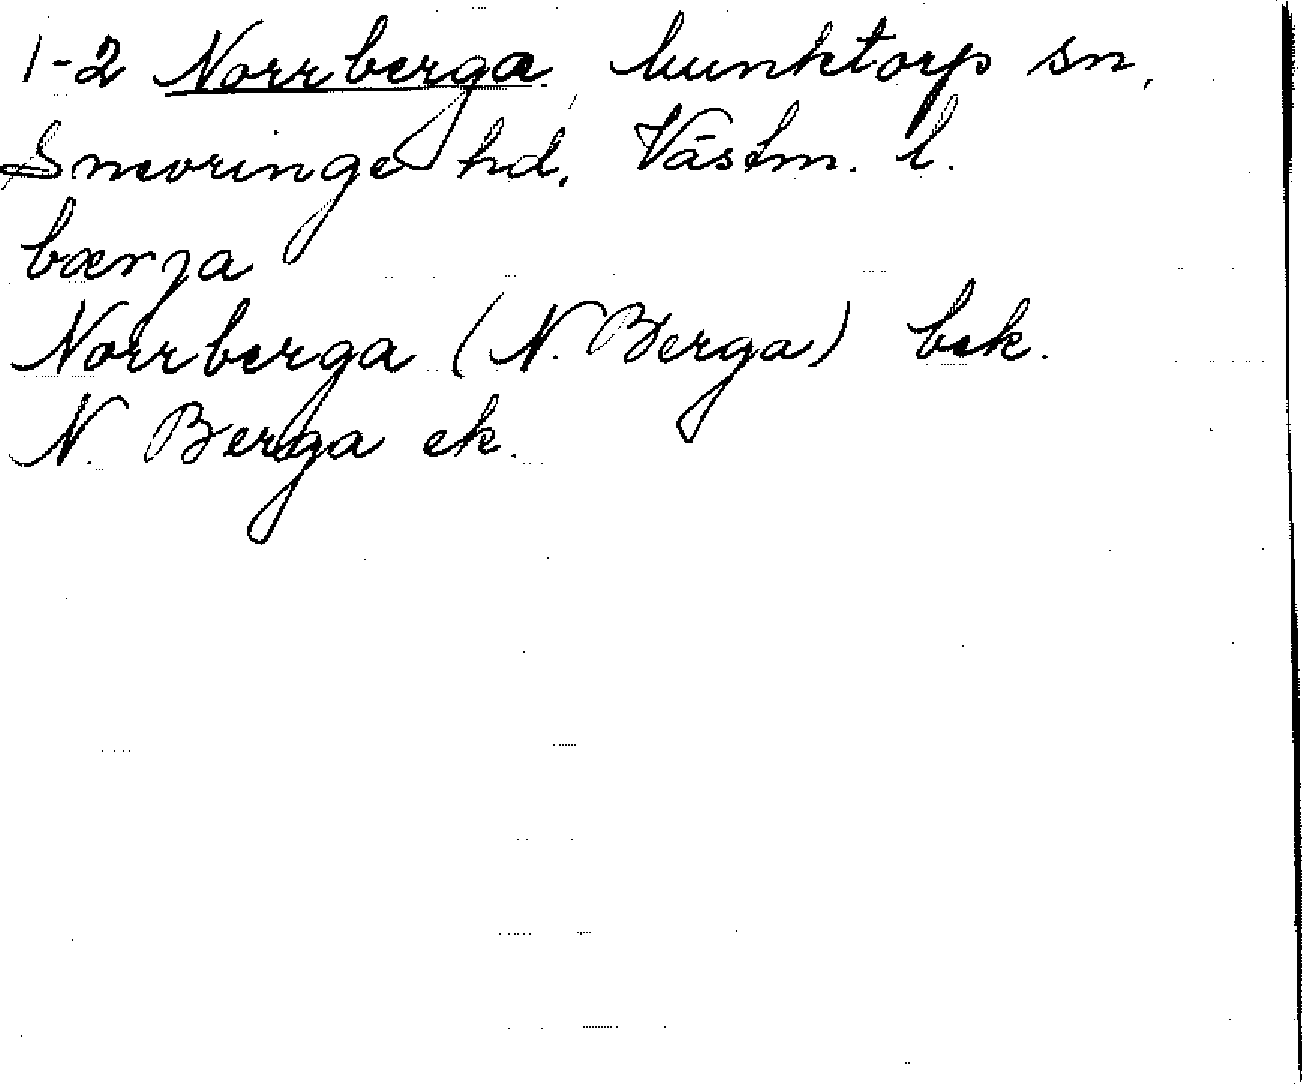 1-2 Norrberga, Munktorp sn,
Snevringe hd, Västm. l.
bærja
Norrberga (N. Berga) bek.
N. Berga ek.